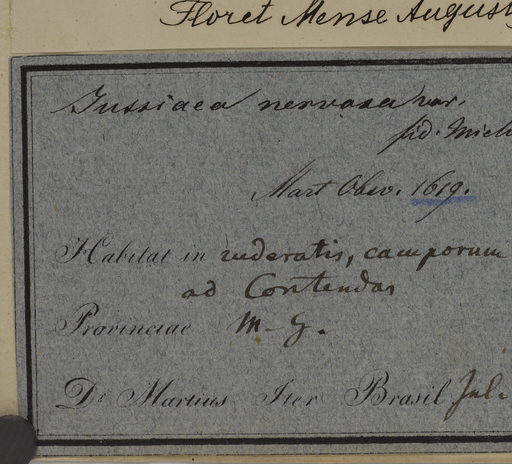 Floret Mense August
Jussiaea nervosa var.
fid. Mich
Mart Obsv. 1619.
Habitat in ruderatis, camporum
ad Contendas
Provinciae M. G.
Dr Martius Iter Brasil Jul.